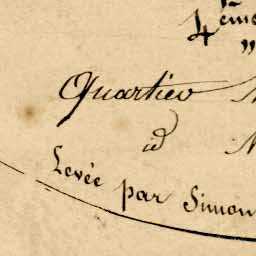 4ème
"
Quartier
id
Levée par Simon